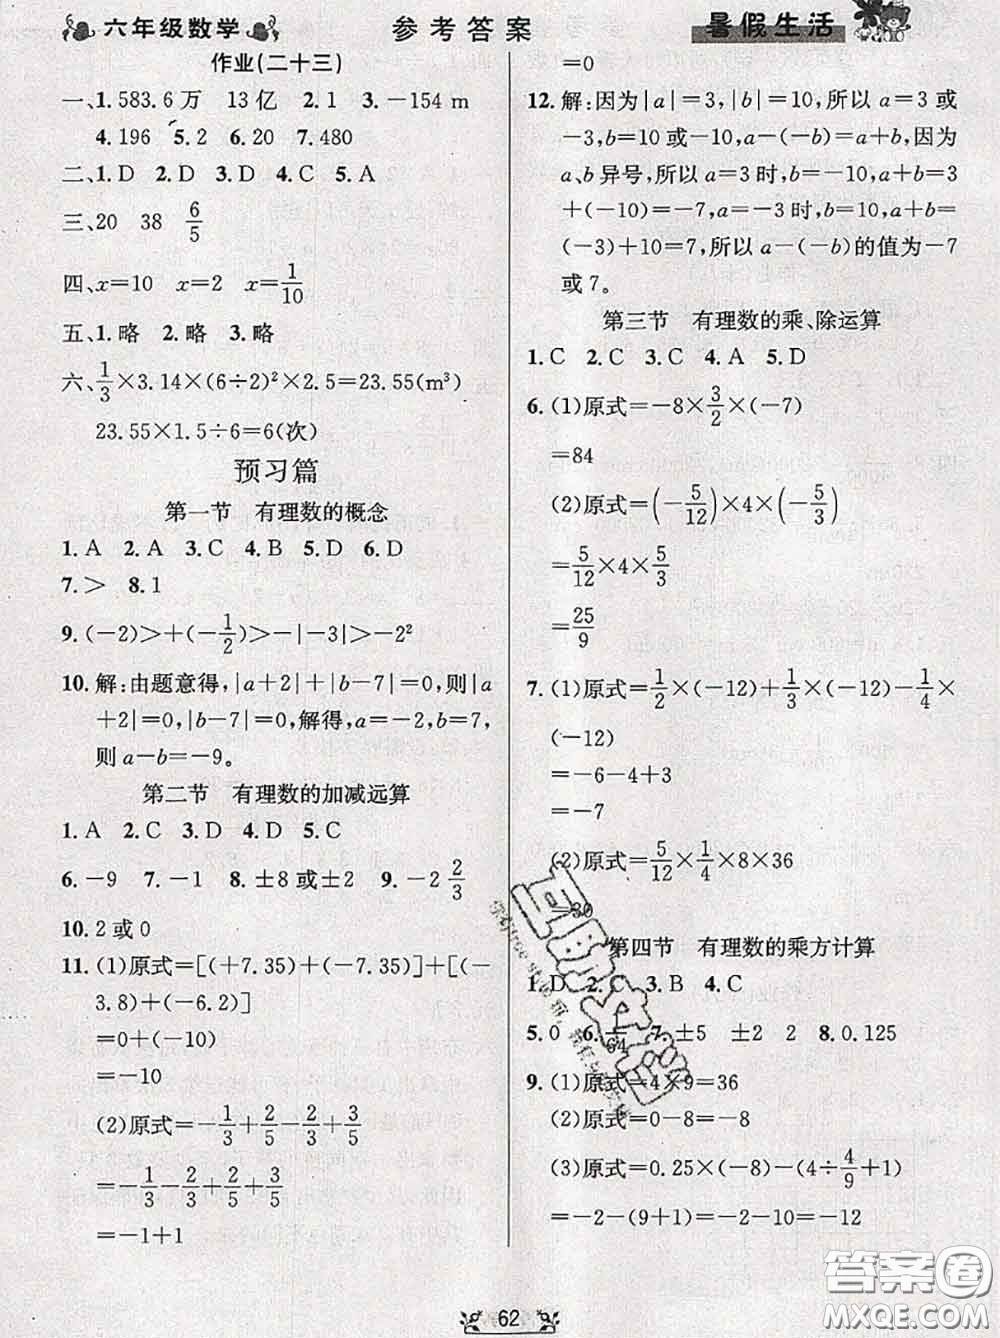 六年级数学 参考答案 暑假生活
作业(二十三)
一、1.583.6万 13亿 2.1 3.－154 m
4.196 5.2 6.20 7.480
二、1.D 2.D 3.D 4.C 5.A
三、20 38 6/5
四、x=10 x=2 x=1/10
五、1.略 2.略 3.略
六、1/3×3.14×(6÷2)²×2.5=23.55(m³)
23.55×1.5÷6=6(次)
预习篇
第一节 有理数的概念
1.A 2.A 3.C 4.B 5.D 6.D
7.> 8.1
9.(-2)>+(-1/2)>-|-3|>-2²
10.解:由题意得,|a+2|+|b-7|=0,则|a
+2|=0,|b-7|=0,解得,a=-2,b=7,
则a-b=-9。
第二节 有理数的加减远算
1.A 2.C 3.D 4.D 5.C
6.-9 7.-1 8.±8或±2 9.-2 2/3
10.2或0
11.(1)原式=[(+7.35)+(-7.35)]+[(-
3.8)+(-6.2)]
=0+(-10)
=-10
(2)原式=-1/3+2/5-2/3+3/5
=-1/3-2/3+2/5+3/5
=-1+1
=0
12.解:因为|a|=3,|b|=10,所以a=3或
-3,b=10或-10,a-(-b)=a+b,因为
a、b异号,所以a=3时,b=-10,a+b=3
+(-10)=-7,a=-3时,b=10,a+b=
(-3)+10=7,所以a-(-b)的值为-7
或7。
第三节 有理数的乘、除运算
1.C 2.C 3.C 4.A 5.D
6.(1)原式=-8×3/2×(-7)
=84
(2)原式=(-5/12)×4×(-5/3)
=5/12×4×5/3
=25/9
7.(1)原式=1/2×(-12)+1/3×(-12)-1/4×
(-12)
=-6-4+3
=-7
(2)原式=5/12×1/4×8×36
=30
第四节 有理数的乘方计算
1.D 2.C 3.B 4.C
5.0 6. 7.±5 ±2 2 8.0.125
9.(1)原式=4×9=36
(2)原式=0-8=-8
(3)原式=0.25×(-8)-(4÷4/9+1)
=-2-(9+1)=-2-10=-12
62
答案圈
MXQE.COM